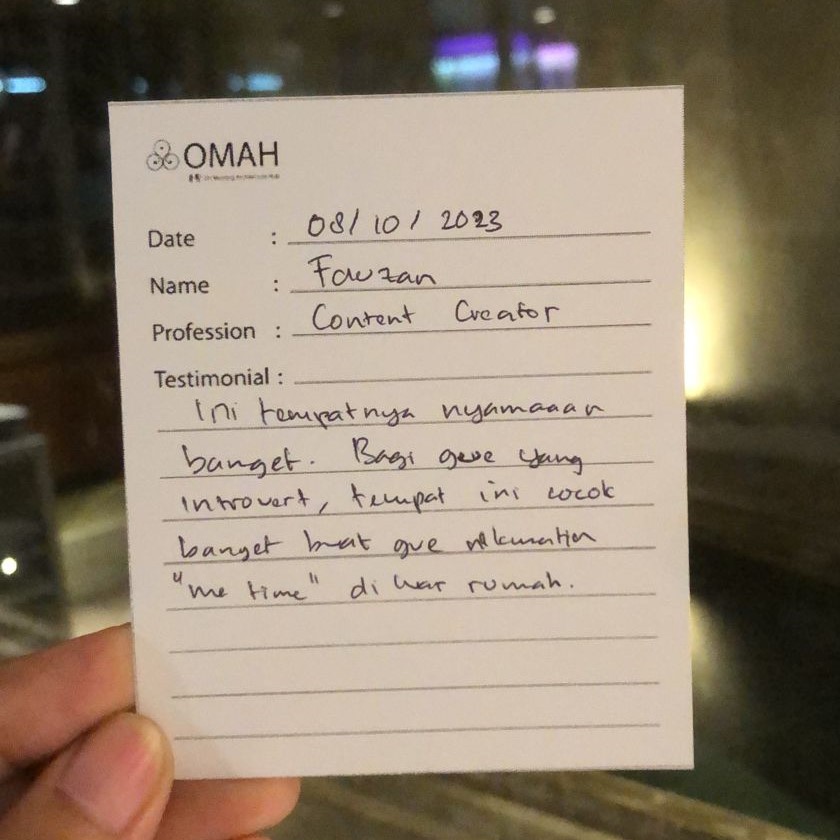 OMAH
Date : 08/10/2023
Name : Fauzan
Profession : Content Creator
Testimonial :
Ini tempatnya nyamaaan
banget. Bagi gue yang
introvert, tempat ini cocok
banget buat gue nikmatin
"me time" di luar rumah.